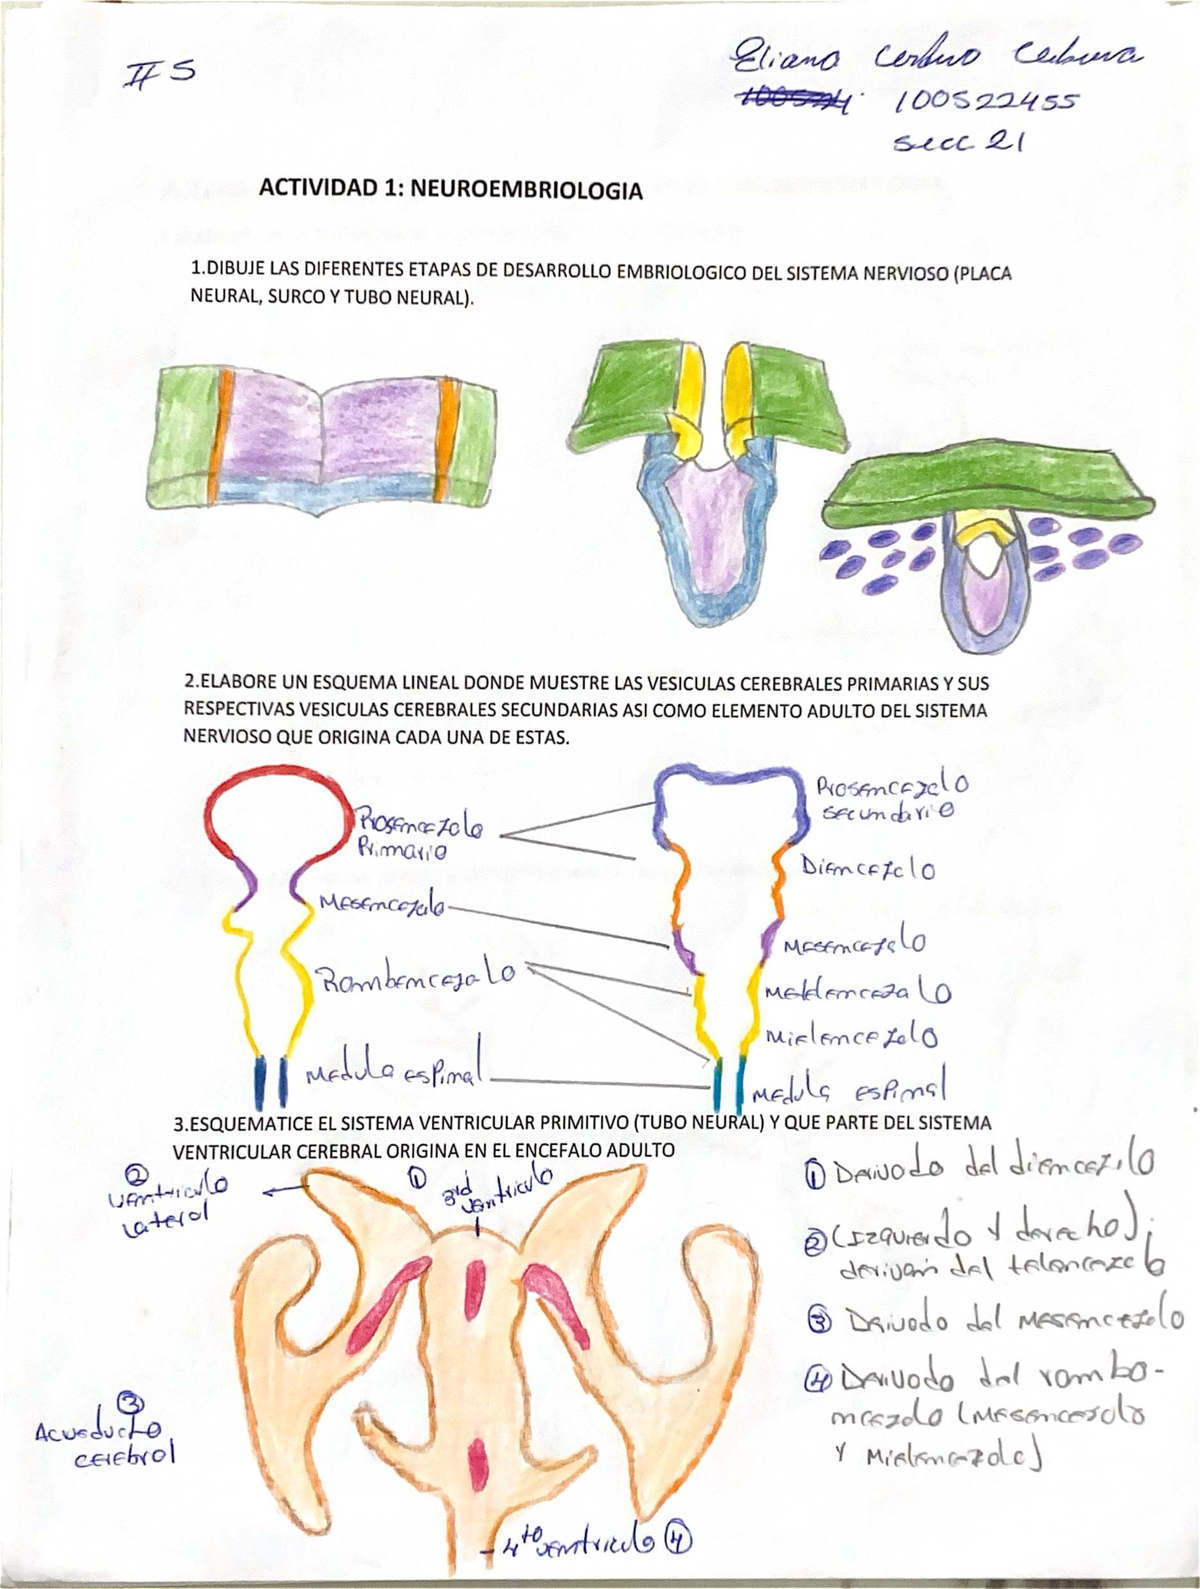 # 5
Eliana
100522455
secc 21
ACTIVIDAD 1: NEUROEMBRIOLOGIA
1.DIBUJE LAS DIFERENTES ETAPAS DE DESARROLLO EMBRIOLOGICO DEL SISTEMA NERVIOSO (PLACA
NEURAL, SURCO Y TUBO NEURAL).
2.ELABORE UN ESQUEMA LINEAL DONDE MUESTRE LAS VESICULAS CEREBRALES PRIMARIAS Y SUS
RESPECTIVAS VESICULAS CEREBRALES SECUNDARIAS ASI COMO ELEMENTO ADULTO DEL SISTEMA
NERVIOSO QUE ORIGINA CADA UNA DE ESTAS.
Prosencefalo
Primario
Mesencefalo
Rombencefalo
Medula espinal
Prosencefalo
secundario
Diencefalo
Mesencefalo
Metencefalo
Mielencefalo
Medula espinal
3.ESQUEMATICE EL SISTEMA VENTRICULAR PRIMITIVO (TUBO NEURAL) Y QUE PARTE DEL SISTEMA
VENTRICULAR CEREBRAL ORIGINA EN EL ENCEFALO ADULTO
② ventriculo
Lateral
① 3rd
ventriculo
③
Acueducto
cerebral
4to ventriculo ④
① Derivado del diencefalo
② (Izquierdo y derecho);
derivan del telencefalo
③ Derivado del Mesencefalo
④ Derivado del rombo-
encefalo (Mesencefalo
y Mielencefalo)